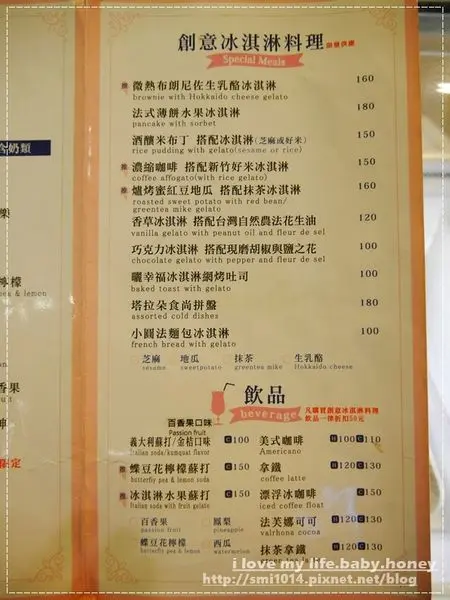 創意冰淇淋料理
Special Meals
推 微熱布朗尼佐生乳酪冰淇淋 160
brownie with Hokkaido cheese gelato
法式薄餅水果冰淇淋 180
pancake with sorbet
酒釀米布丁 搭配冰淇淋(芝麻或好米) 150
rice pudding with gelato(sesame or rice)
推 濃縮咖啡 搭配新竹好米冰淇淋 150
coffee affogato(with rice gelato)
推 爐烤蜜紅豆地瓜 搭配抹茶冰淇淋 160
roasted sweet potato with red bean/
greentea mike gelato
香草冰淇淋 搭配台灣自然農法花生油 120
vanilla gelato with peanut oil and fleur de sel
巧克力冰淇淋 搭配現磨胡椒與鹽之花 100
chocolate gelato with pepper and fleur de sel
曬幸福冰淇淋網烤吐司 100
baked toast with gelato
塔拉朵食尚拼盤 180
assorted cold dishes
小圓法麵包冰淇淋 100
french bread with gelato
芝麻 地瓜 抹茶 生乳酪
sesame sweetpotato greentea mike Hokkaido cheese
飲品
beverage
凡購買創意冰淇淋料理
飲品一律折扣50元
百香果口味
Passion fruit
義大利蘇打/金桔口味 C100
Italian soda/kumquat flavor
推 蝶豆花檸檬蘇打 C150
butterfly pea & lemon soda
推 冰淇淋水果蘇打 C150
Italian soda with fruit gelato
百香果 鳳梨
passion fruit pineapple
蝶豆花檸檬 西瓜
butterfly pea & lemon watermelon
美式咖啡 H100 C110
Americano
拿鐵 H120 C130
coffee latte
漂浮冰咖啡 C150
iced coffee float
法芙娜可可 H120 C130
valrhona cocoa
抹茶拿鐵 H120 C130
奶類
檸檬
pea & lemon
香果
限定
i love my life.baby.honey
http://smi1014.pixnet.net/blog